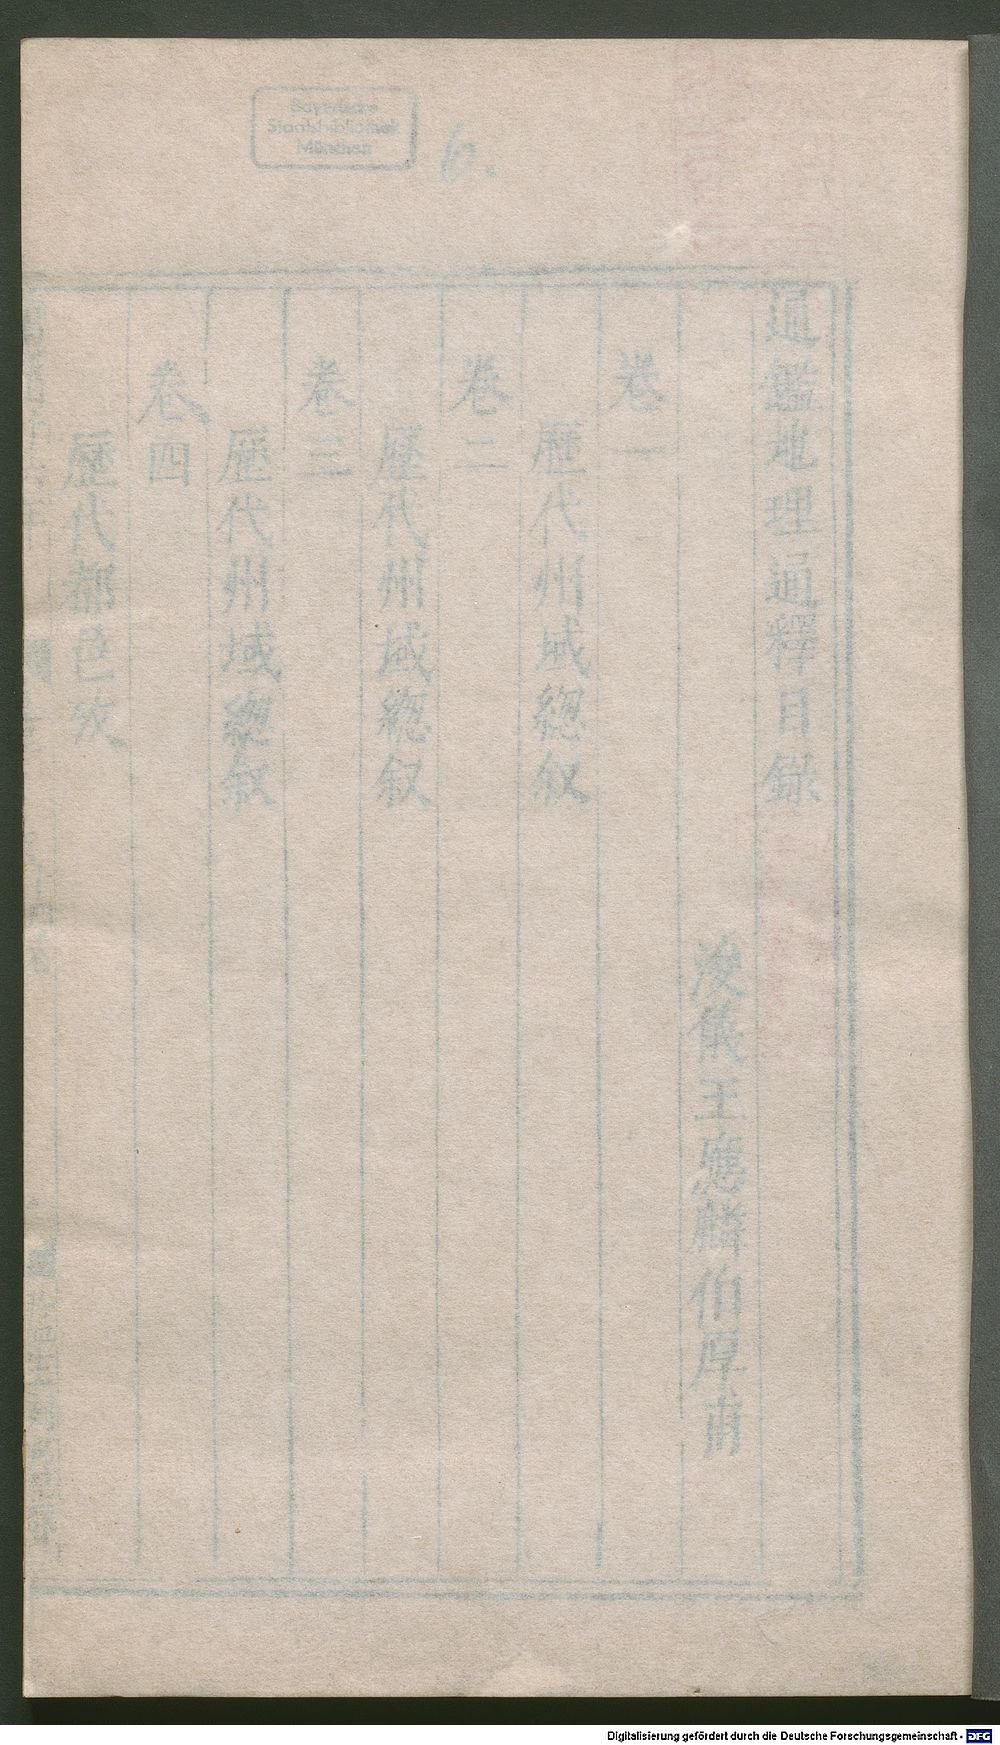 Bayerische
Staatsbibliothek
München
6.
通鑑地理通釋目錄
浚儀王應麟伯厚甫
卷一
歷代州域總叙
卷二
歷代州域總叙
卷三
歷代州域總叙
卷四
歷代都邑攷
Digitalisierung gefördert durch die Deutsche Forschungsgemeinschaft - DFG